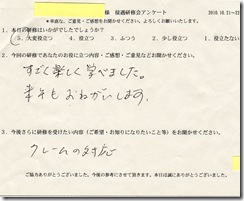 様 接遇研修会アンケート 2010.10.21~22
★率直な、ご意見・ご感想をお聞かせください。よろしくお願いします。
1. 本日の研修はいかがでしたでしょうか？
5. 大変役立つ 4. 役立つ 3. ふつう 2. 少し役立つ 1. 役立たない
2. 今回の研修であなたのお役に立つ内容・ご感想・ご意見などお聞かせください。
すごく楽しく学べました。
来年もおねがいします。
3. 今後さらに研修を受けたい内容（ご希望・お知りになりたいこと等）をお聞かせください。
クレームの対応
ご協力ありがとうございました。今後の参考にさせて頂きます。本日は誠にありがとうございました。